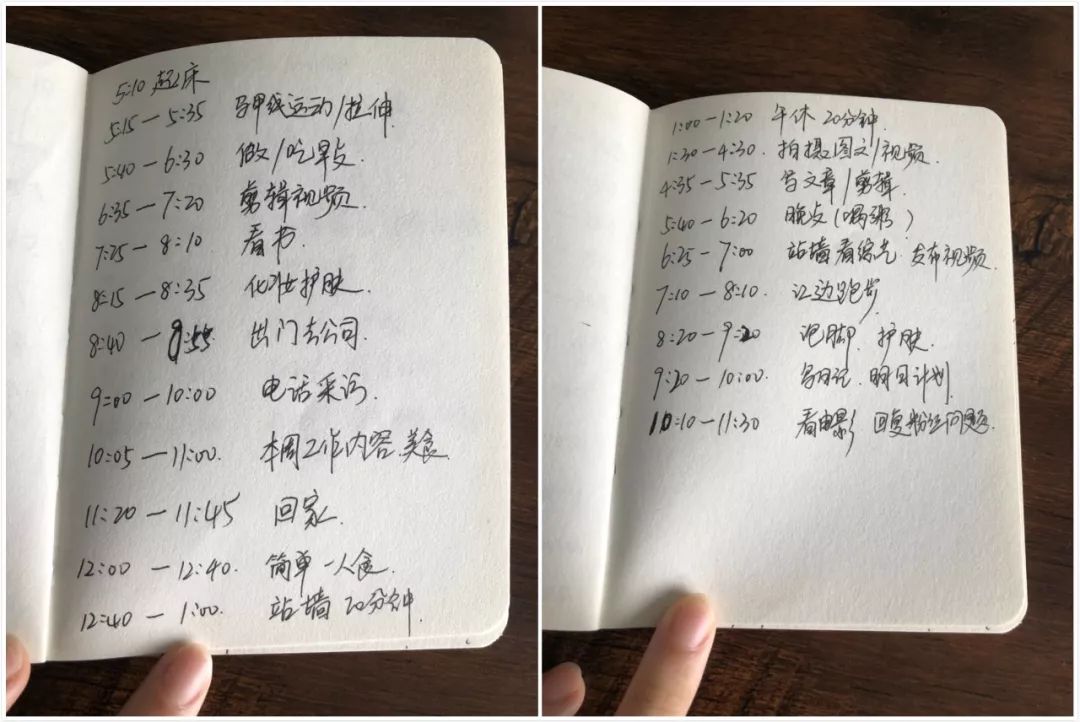 5:10 起床
5:15 — 5:35 马甲线运动/拉伸
5:40 — 6:30 做/吃早点.
6:35 — 7:20 剪辑视频.
7:25 — 8:10 看书.
8:15 — 8:35 化妆护肤.
8:40 — 9:55 出门去公司.
9:00 — 10:00 电话采访.
10:05 — 11:00. 本周工作内容.美食.
11:20 — 11:45 回家.
12:00 — 12:40. 简单一人食.
12:40 — 1:00. 站墙 20分钟.
1:00 — 1:20 午休 20分钟.
1:30 — 4:30. 拍摄图文/视频.
4:35 — 5:35 写文章/剪辑.
5:40 — 6:20 晚点(喝粥)
6:25 — 7:00 站墙看综艺. 发布视频.
7:10 — 8:10. 江边跑步.
8:20 — 9:20 泡脚. 护肤.
9:20 — 10:00. 写日记. 明日计划
10:10 — 11:30 看电影 回复粉丝问题.